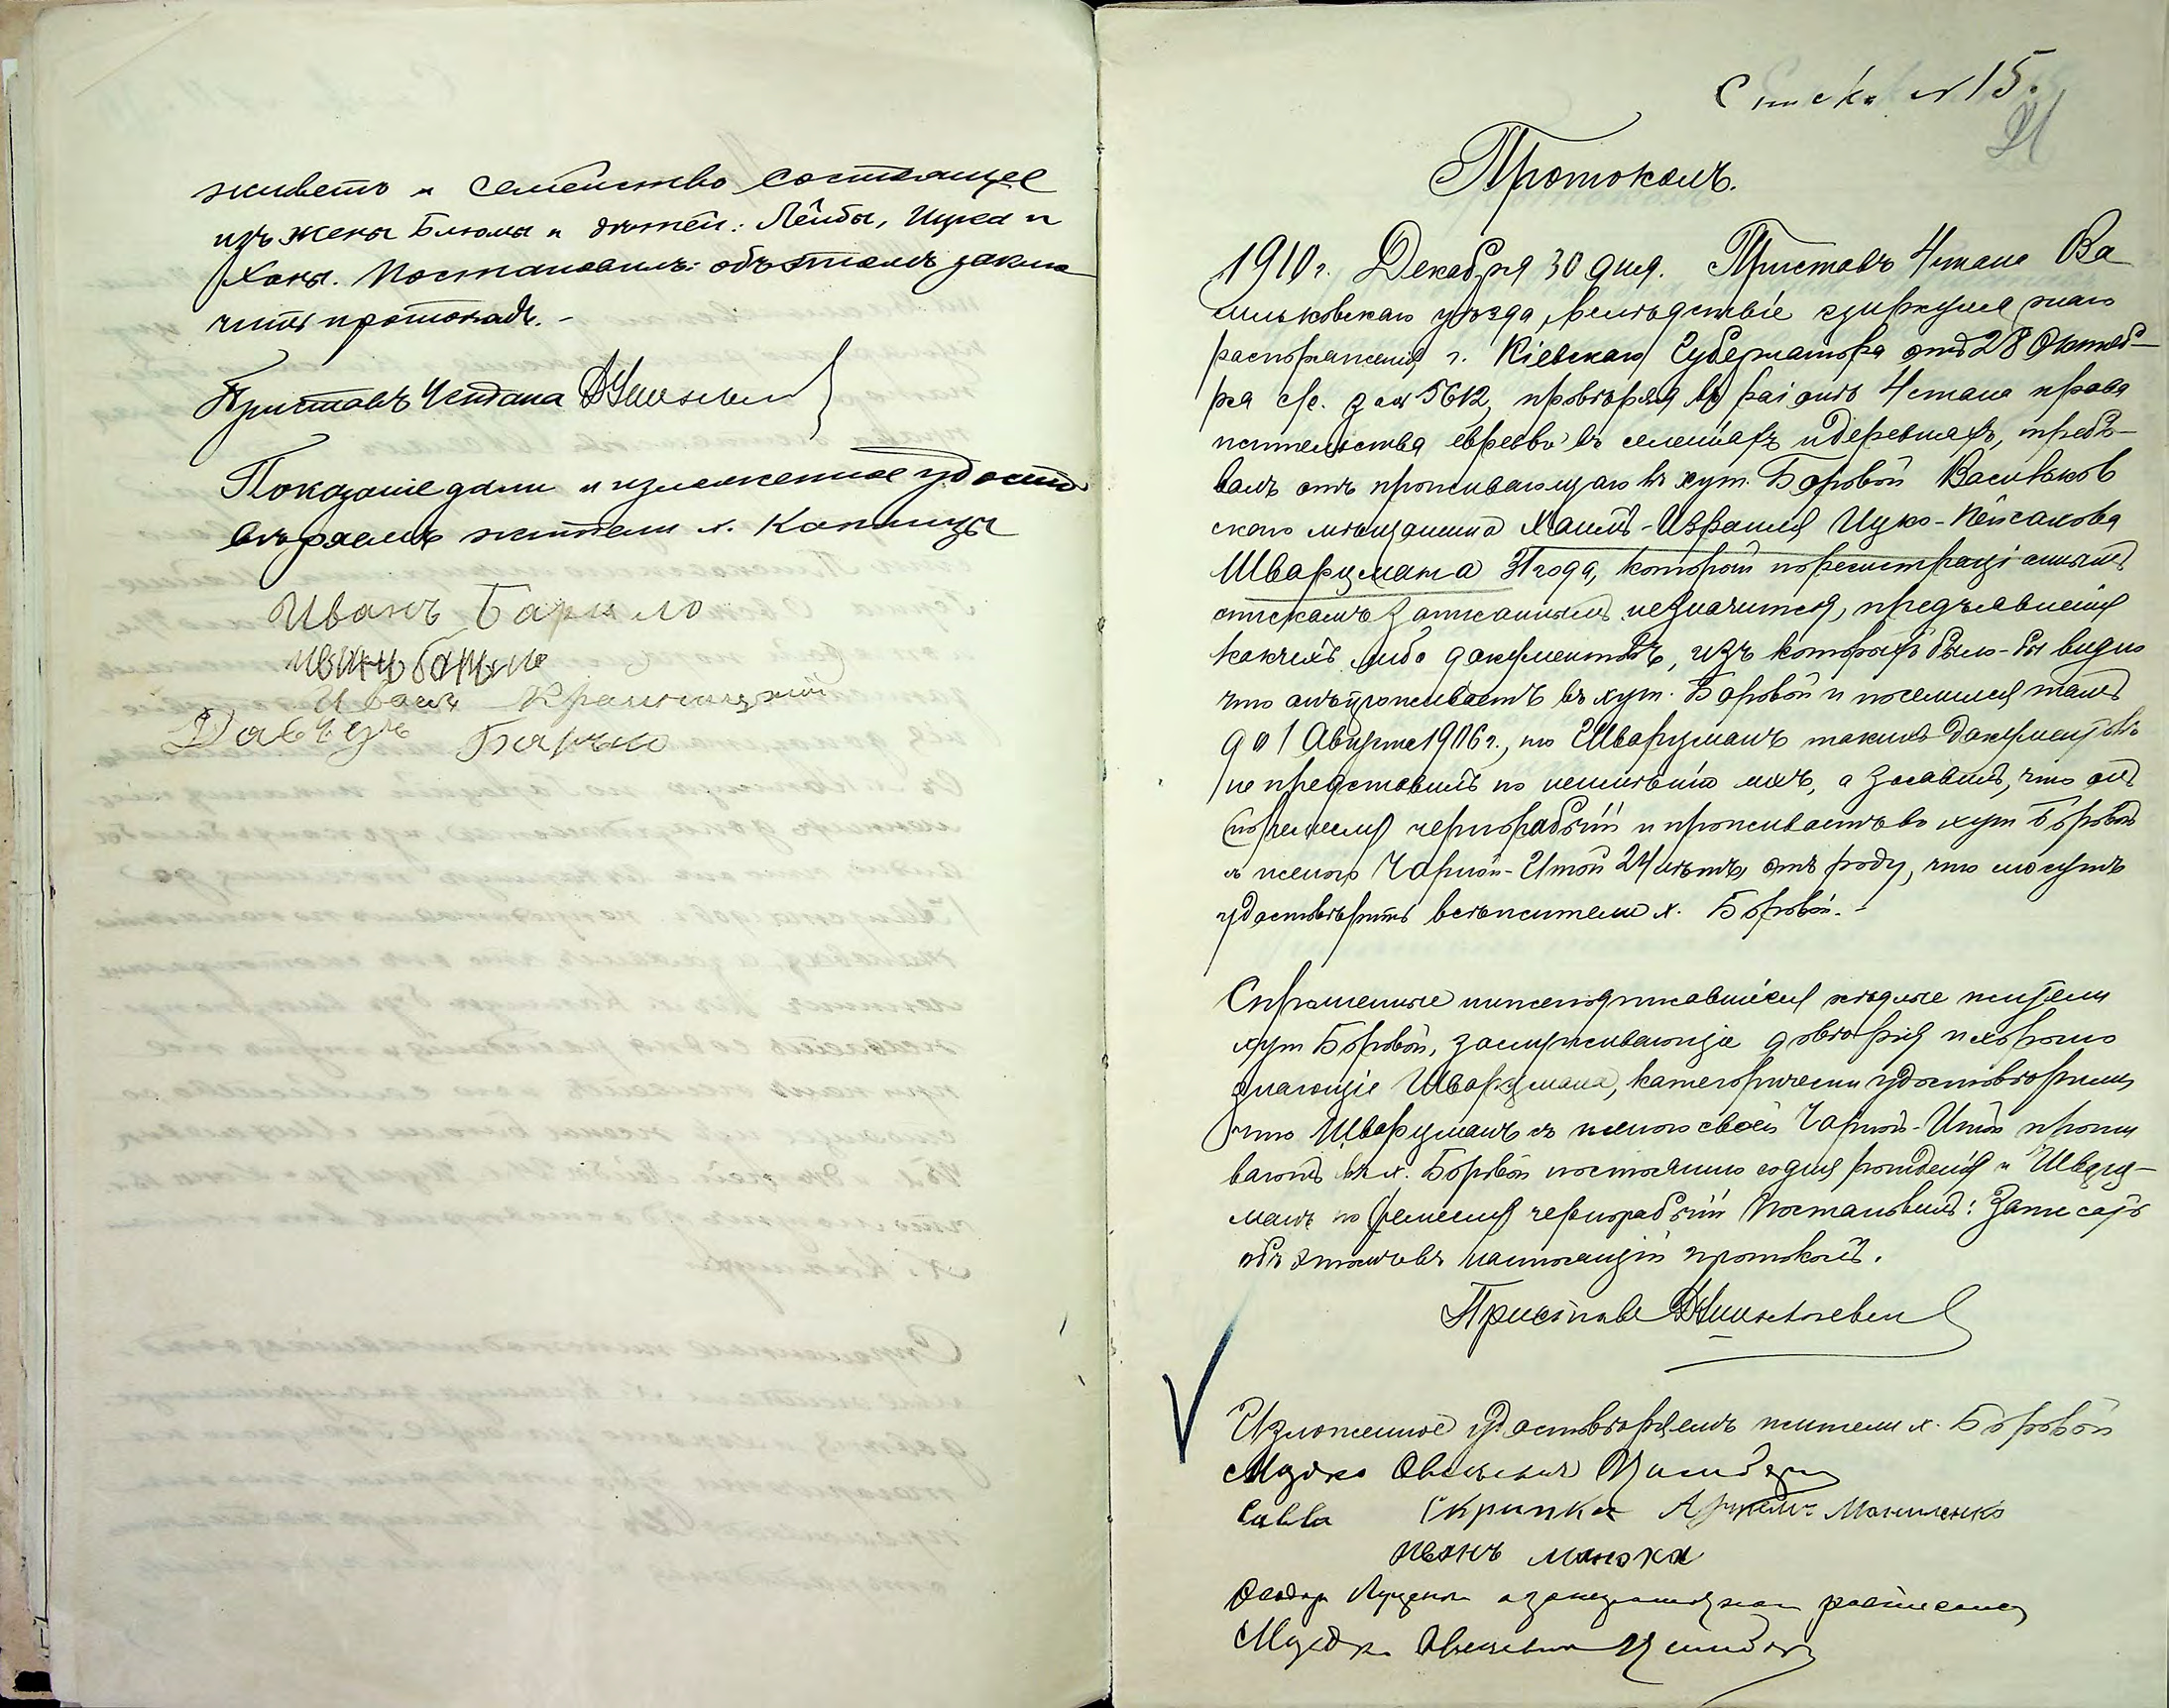 живетъ и семейство состоящее
изъ жены Блюмы и дѣтей: Лейбы, Ицка и
Ханы. Постановилъ: объ этомъ заклю
чить протоколъ.-
Приставъ 4 стана
Показаніе дали и изложенное удосто
вѣряемъ жители х. Коптицы
Иванъ Барило
Иванъ
Давидъ Барыло
Списк. № 15.
21
Протоколъ.
1910 г. Декабря 30 дня. Приставъ 4 стана Ва
сильковскаго уѣзда, вслѣдствіе циркулярнаго
распоряженія г. Кіевскаго Губернатора отъ 28 Октяб-
ря с/г. за № 5612, провѣряя въ раіонѣ 4 стана права
жительства евреевъ въ селеніяхъ и деревняхъ, требо-
валъ отъ проживающаго въ хут. Боровой Васильков
скаго мѣщанина Хаимъ-Израиля Ицко-Пейсахова
Шварцмана 31 года, который по регистраціоннымъ
спискамъ записаннымъ не значится, предъявленія
какихъ либо документовъ, изъ которыхъ было-бы видно
что онъ проживаетъ въ хут. Боровой и поселился тамъ
до 1 Августа 1906 г., но Шварцманъ такихъ документовъ
не представилъ по неимѣнію ихъ, а заявилъ, что онъ
по ремеслу чернорабочій и проживаетъ въ хут Боровой
съ женою Чарной-Итой 24 лѣтъ, отъ роду, что могутъ
удостовѣрить всѣ жители х. Боровой.-
Спрошенные нижеподписавшіеся жители
хут Боровой, заслуживающіе довѣрія и хорошо
знающіе Шварцмана, категорически удостовѣрили
что Шварцманъ съ женою своей Чарной-Итой прожи
ваютъ въ х. Боровой постоянно со дня рожденія и Шварц-
манъ по ремеслу чернорабочій Постановилъ: Записать
объ этомъ въ настоящій протоколъ.
Приставъ
Изложенное удостовѣряемъ жители х. Боровой
Савва Скрипка Артемъ Маниленко
Иванъ Манока
Федор Луценко а за неграмотнаго расписался